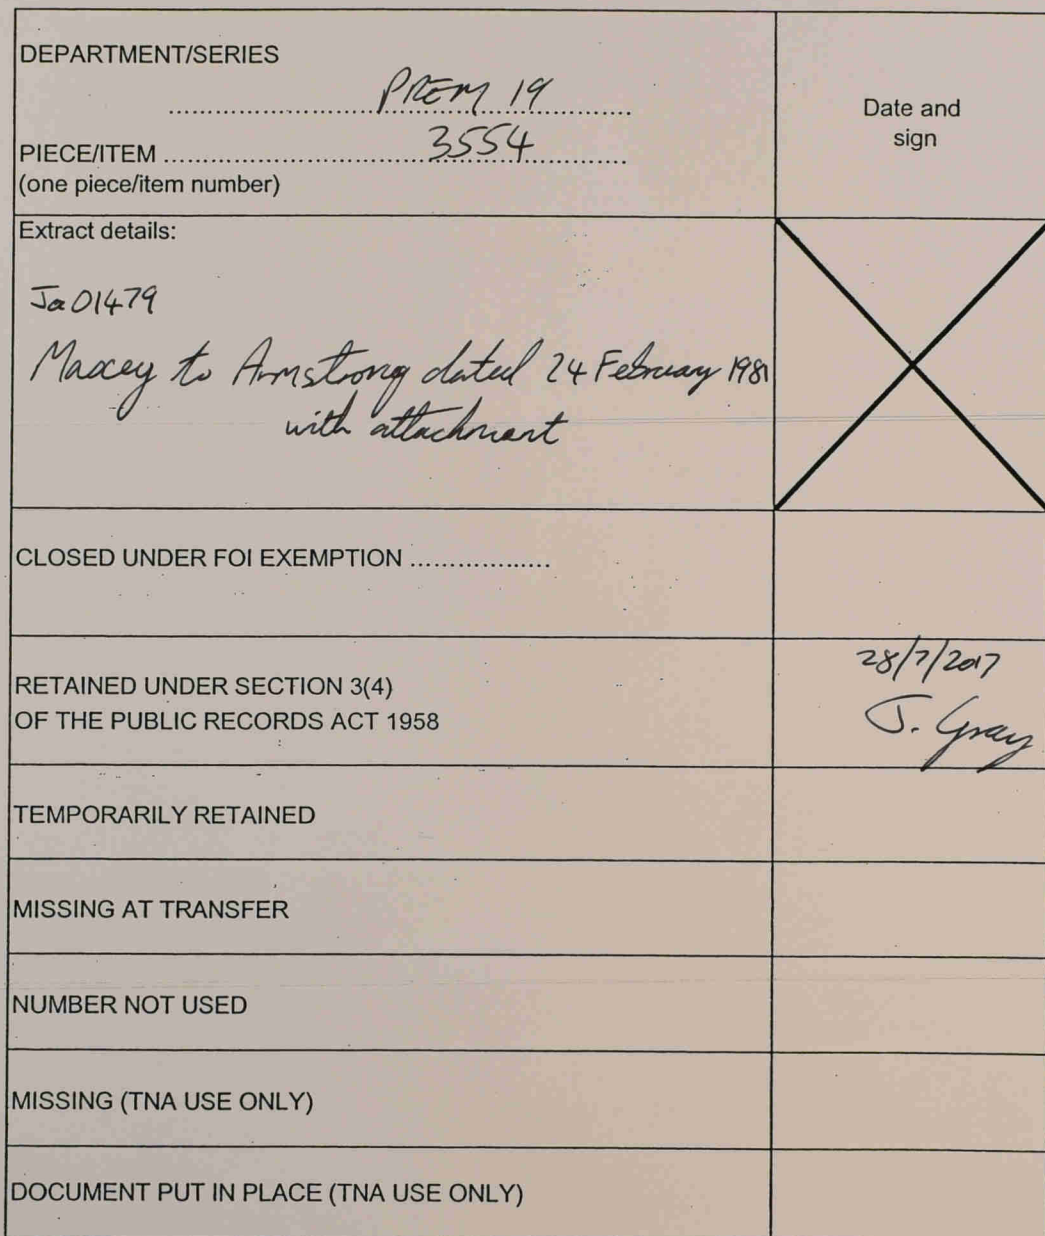 DEPARTMENT/SERIES
PREM 19
Date and
sign
PIECE/ITEM .................... 3554
(one piece/item number)
Extract details:
Ja 01479
Maxey to Armstrong dated 24 February 1981
with attachment
CLOSED UNDER FOI EXEMPTION ..................
RETAINED UNDER SECTION 3(4)
OF THE PUBLIC RECORDS ACT 1958
28/7/2017
J. Gray
TEMPORARILY RETAINED
MISSING AT TRANSFER
NUMBER NOT USED
MISSING (TNA USE ONLY)
DOCUMENT PUT IN PLACE (TNA USE ONLY)